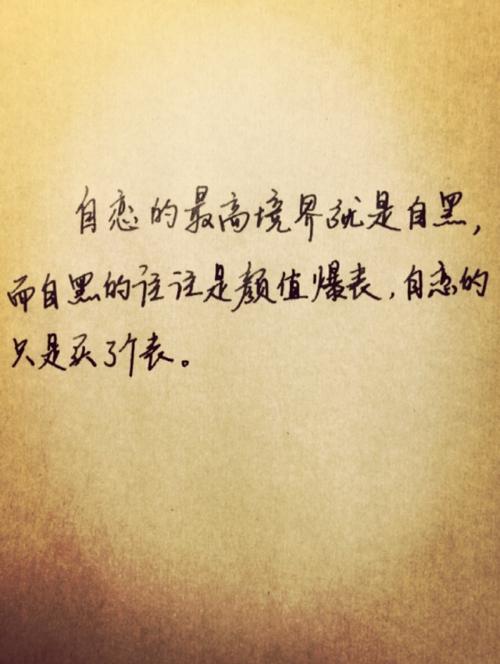 自恋的最高境界就是自黑,
而自黑的往往是颜值爆表,自恋的
只是买了个表。